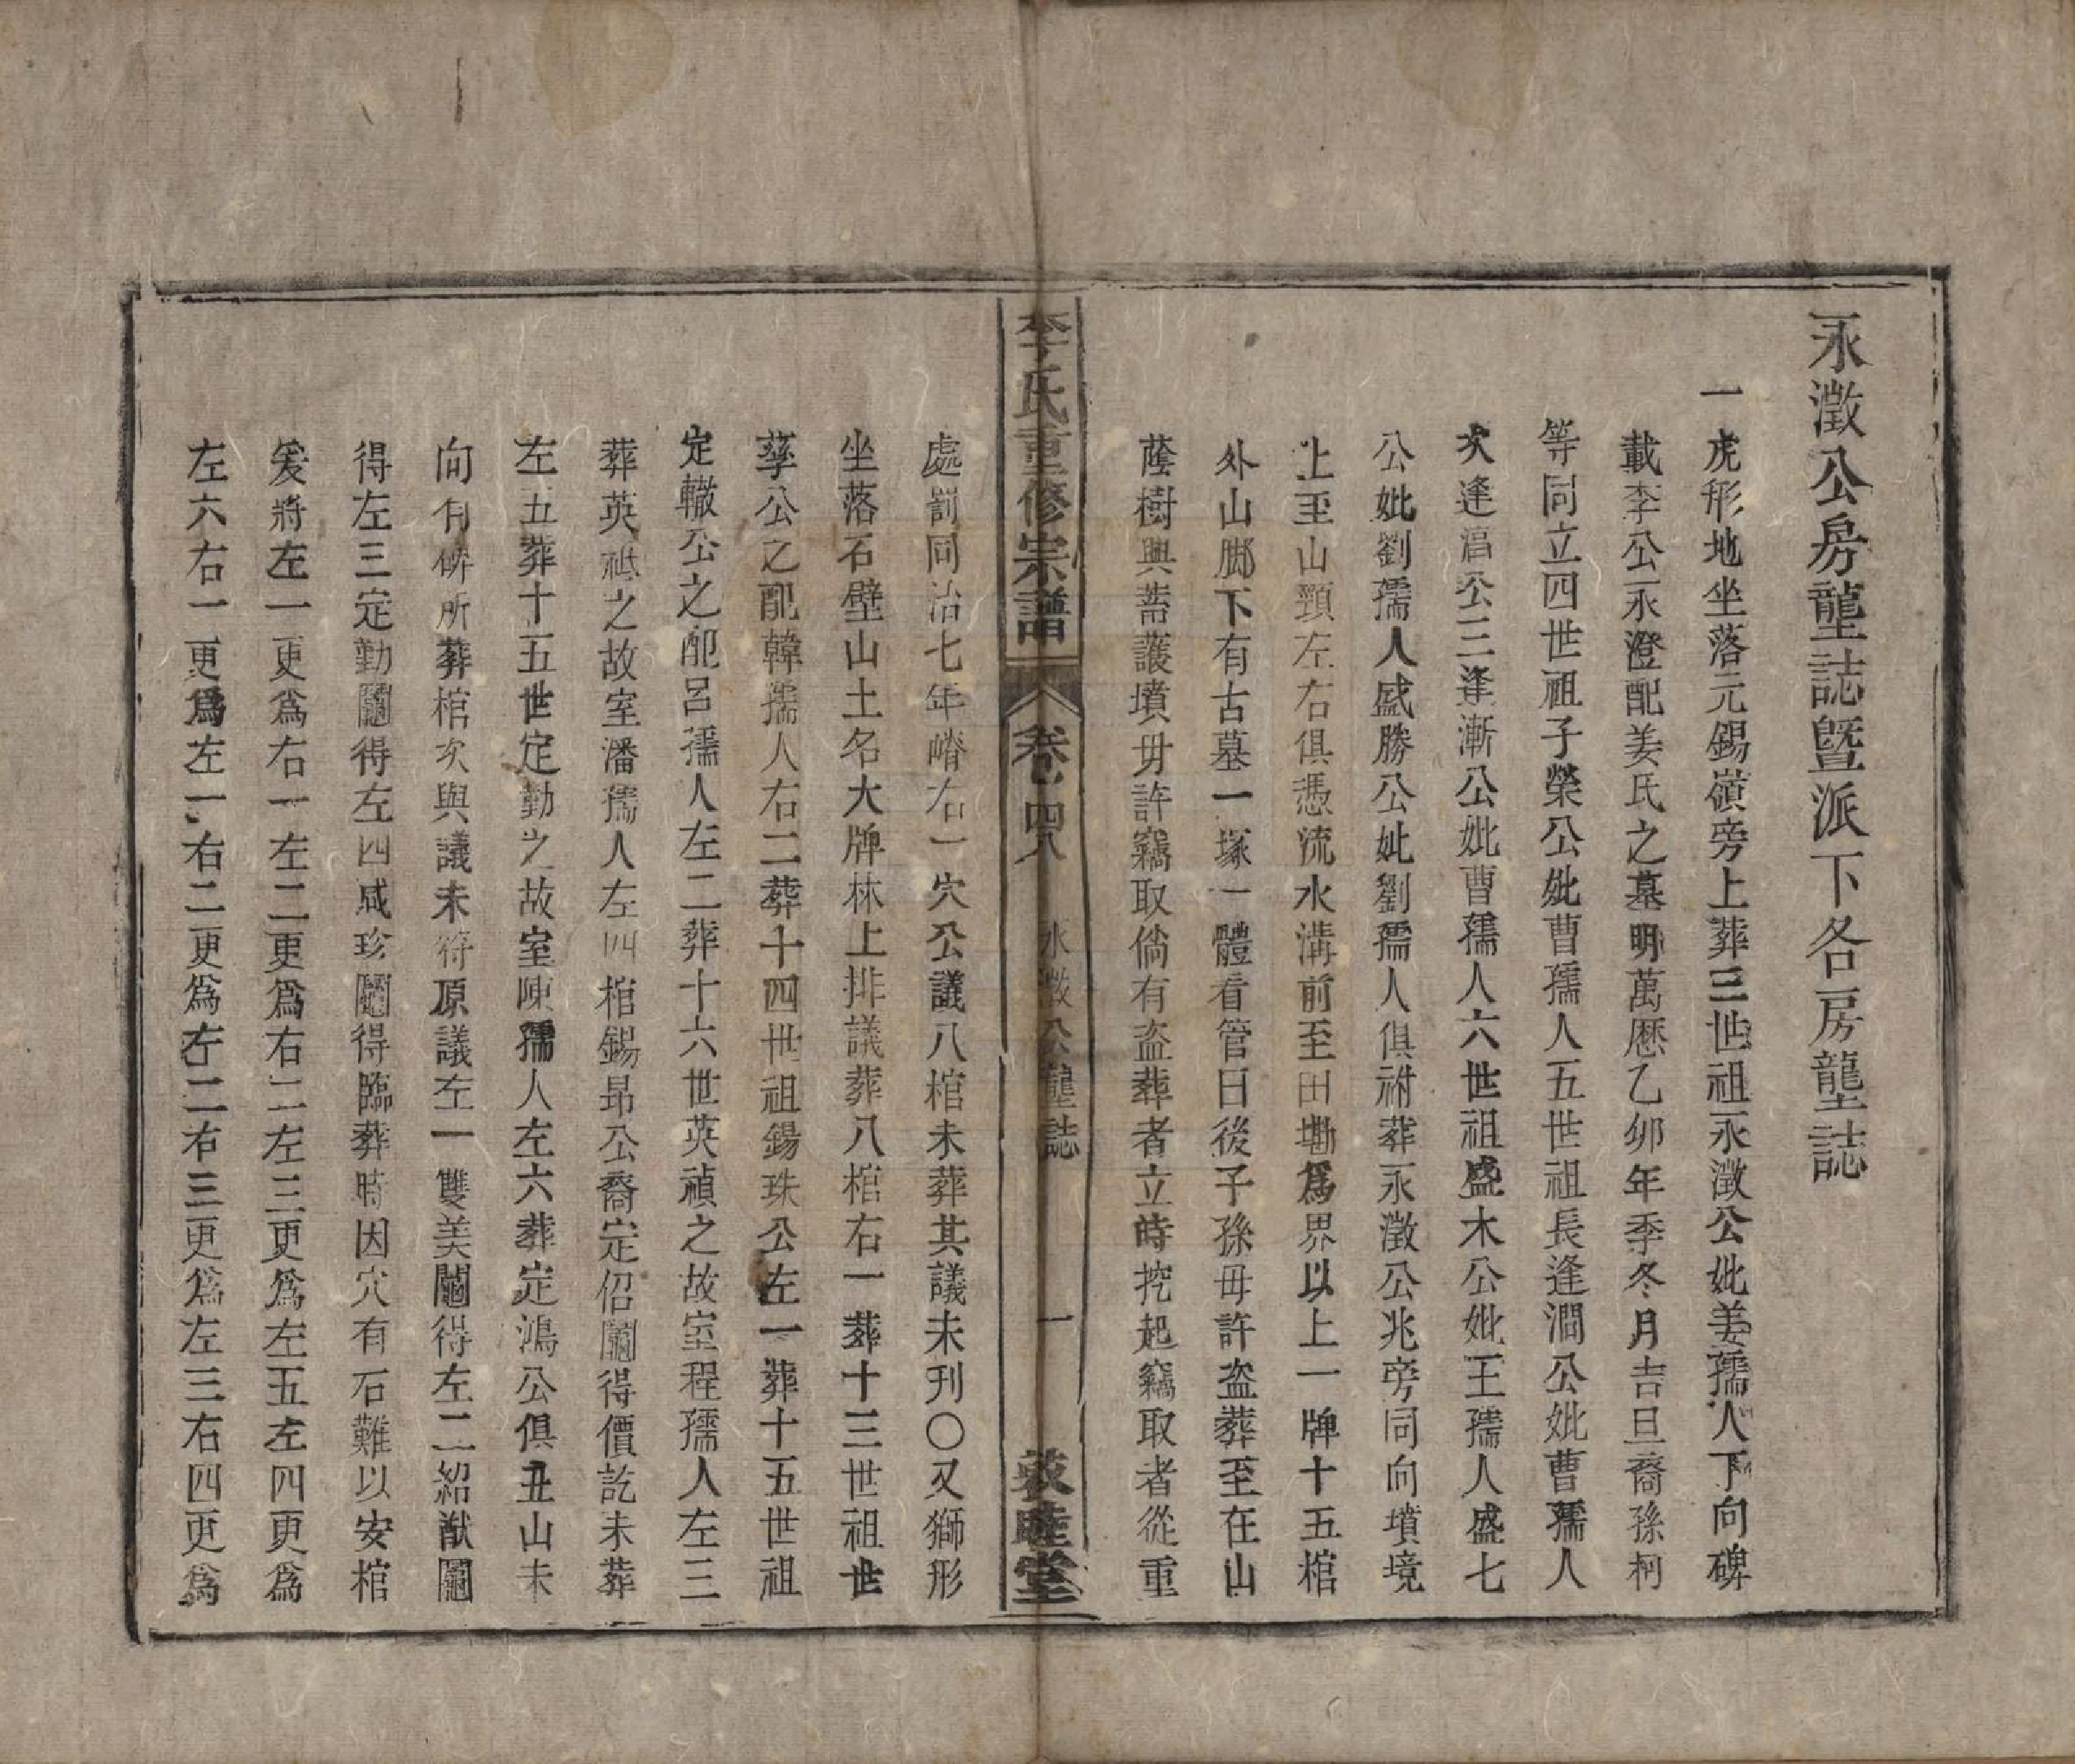 永澂公房壟誌曁派下各房壟誌
一虎形地坐落元錫嶺旁上葬三世祖永澂公妣姜孺人丁向碑
載李公永澄配姜氏之墓明萬厯乙卯年季冬月吉旦裔孫柯
等同立四世祖子榮公妣曹孺人五世祖長逢澗公妣曹孺人
次逢淐公三逢漸公妣曹孺人六世祖盛木公妣王孺人盛七
公妣劉孺人盛勝公妣劉孺人俱祔葬永澂公兆旁同向墳境
上至山頸左右俱憑流水溝前至田墈爲界以上一牌十五棺
外山腳下有古墓一塚一體看管日後子孫毋許盜葬至在山
蔭樹興蓄護墳毋許竊取倘有盜葬者立時挖起竊取者從重
李氏重修宗譜 卷四八 永澂公壟誌 一 敦睦堂
處罰同治七年嵴右一穴公議八棺未葬其議未刊〇又獅形
坐落石壁山土名大牌林上排議葬八棺右一葬十三世祖世
孳公之配韓孺人右二葬十四世祖錫珠公左一葬十五世祖
定轍公之配呂孺人左二葬十六世英禎之故室程孺人左三
葬英祗之故室潘孺人左四棺錫昻公裔定佋鬮得價訖未葬
左五葬十五世定勤之故室陳孺人左六葬定鴻公俱丑山未
向有碑所葬棺次與議未符原議左一雙美鬮得左二紹猷鬮
得左三定勤鬮得左四咸珍鬮得臨葬時因穴有石難以安棺
爰將左一更爲右一左二更爲右二左三更爲左五左四更爲
左六右一更爲左一右二更爲左二右三更爲左三右四更爲